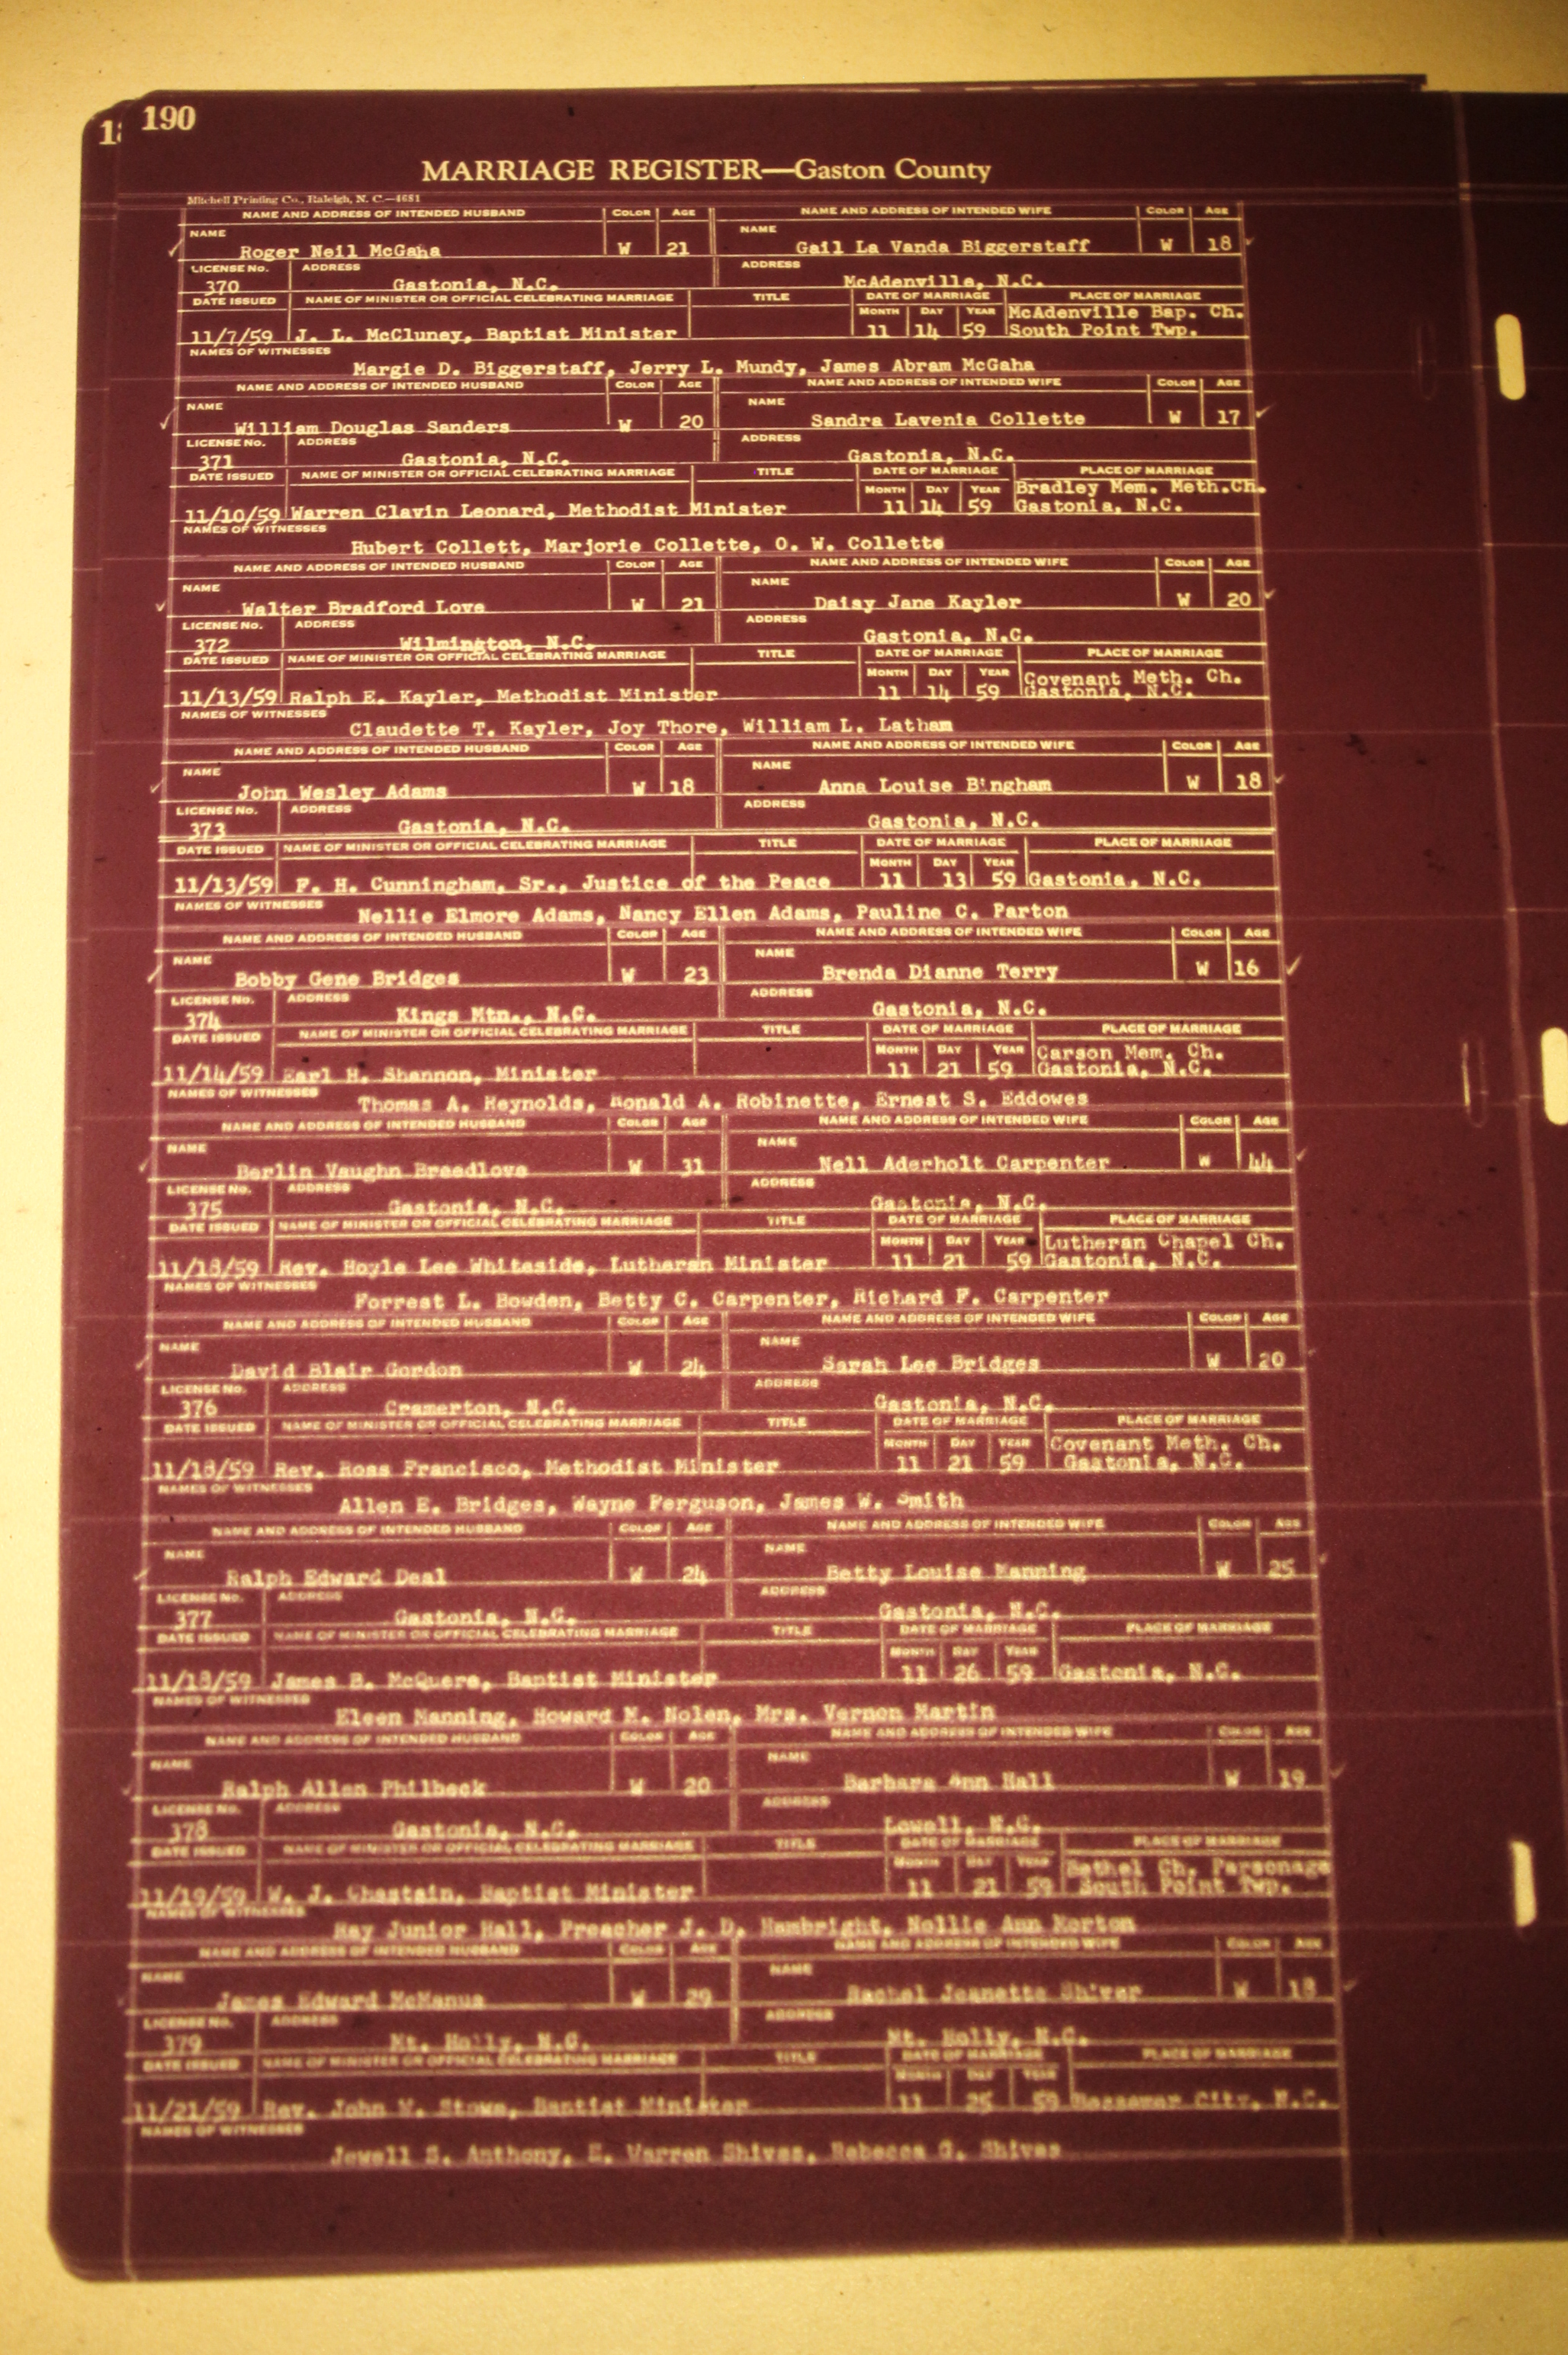 190
MARRIAGE REGISTER—Gaston County
Mitchell Printing Co., Raleigh, N. C.—4681
NAME AND ADDRESS OF INTENDED HUSBAND COLOR AGE NAME AND ADDRESS OF INTENDED WIFE COLOR AGE
NAME Roger Neil McGaha W 21 NAME Gail La Vanda Biggerstaff W 18
LICENSE No. ADDRESS ADDRESS
370 Gastonia, N.C. McAdenville, N.C.
DATE ISSUED NAME OF MINISTER OR OFFICIAL CELEBRATING MARRIAGE TITLE DATE OF MARRIAGE PLACE OF MARRIAGE
MONTH DAY YEAR McAdenville Bap. Ch.
11/7/59 J. L. McCluney, Baptist Minister 11 14 59 South Point Twp.
NAMES OF WITNESSES
Margie D. Biggerstaff, Jerry L. Mundy, James Abram McGaha
NAME AND ADDRESS OF INTENDED HUSBAND COLOR AGE NAME AND ADDRESS OF INTENDED WIFE COLOR AGE
NAME William Douglas Sanders W 20 NAME Sandra Lavenia Collette W 17
LICENSE No. ADDRESS ADDRESS
371 Gastonia, N.C. Gastonia, N.C.
DATE ISSUED NAME OF MINISTER OR OFFICIAL CELEBRATING MARRIAGE TITLE DATE OF MARRIAGE PLACE OF MARRIAGE
MONTH DAY YEAR Bradley Mem. Meth.Ch.
11/10/59 Warren Clavin Leonard, Methodist Minister 11 14 59 Gastonia, N.C.
NAMES OF WITNESSES
Hubert Collett, Marjorie Collette, O. W. Collette
NAME AND ADDRESS OF INTENDED HUSBAND COLOR AGE NAME AND ADDRESS OF INTENDED WIFE COLOR AGE
NAME Walter Bradford Love W 21 NAME Daisy Jane Kayler W 20
LICENSE No. ADDRESS ADDRESS
372 Wilmington, N.C. Gastonia, N.C.
DATE ISSUED NAME OF MINISTER OR OFFICIAL CELEBRATING MARRIAGE TITLE DATE OF MARRIAGE PLACE OF MARRIAGE
MONTH DAY YEAR Covenant Meth. Ch.
11/13/59 Ralph E. Kayler, Methodist Minister 11 14 59 Gastonia, N.C.
NAMES OF WITNESSES
Claudette T. Kayler, Joy Thore, William L. Latham
NAME AND ADDRESS OF INTENDED HUSBAND COLOR AGE NAME AND ADDRESS OF INTENDED WIFE COLOR AGE
NAME John Wesley Adams W 18 NAME Anna Louise Bingham W 18
LICENSE No. ADDRESS ADDRESS
373 Gastonia, N.C. Gastonia, N.C.
DATE ISSUED NAME OF MINISTER OR OFFICIAL CELEBRATING MARRIAGE TITLE DATE OF MARRIAGE PLACE OF MARRIAGE
MONTH DAY YEAR
11/13/59 F. H. Cunningham, Sr., Justice of the Peace 11 13 59 Gastonia, N.C.
NAMES OF WITNESSES
Nellie Elmore Adams, Nancy Ellen Adams, Pauline C. Parton
NAME AND ADDRESS OF INTENDED HUSBAND COLOR AGE NAME AND ADDRESS OF INTENDED WIFE COLOR AGE
NAME Bobby Gene Bridges W 23 NAME Brenda Dianne Terry W 16
LICENSE No. ADDRESS ADDRESS
374 Kings Mtn., N.C. Gastonia, N.C.
DATE ISSUED NAME OF MINISTER OR OFFICIAL CELEBRATING MARRIAGE TITLE DATE OF MARRIAGE PLACE OF MARRIAGE
MONTH DAY YEAR Carson Mem. Ch.
11/14/59 Earl H. Shannon, Minister 11 21 59 Gastonia, N.C.
NAMES OF WITNESSES
Thomas A. Reynolds, Ronald A. Robinette, Ernest S. Eddowes
NAME AND ADDRESS OF INTENDED HUSBAND COLOR AGE NAME AND ADDRESS OF INTENDED WIFE COLOR AGE
NAME Berlin Vaughn Breedlove W 31 NAME Nell Aderholt Carpenter W 44
LICENSE No. ADDRESS ADDRESS
375 Gastonia, N.C. Gastonia, N.C.
DATE ISSUED NAME OF MINISTER OR OFFICIAL CELEBRATING MARRIAGE TITLE DATE OF MARRIAGE PLACE OF MARRIAGE
MONTH DAY YEAR Lutheran Chapel Ch.
11/18/59 Rev. Hoyle Lee Whiteside, Lutheran Minister 11 21 59 Gastonia, N.C.
NAMES OF WITNESSES
Forrest L. Bowden, Betty C. Carpenter, Richard F. Carpenter
NAME AND ADDRESS OF INTENDED HUSBAND COLOR AGE NAME AND ADDRESS OF INTENDED WIFE COLOR AGE
NAME David Blair Gordon W 24 NAME Sarah Lee Bridges W 20
LICENSE No. ADDRESS ADDRESS
376 Cramerton, N.C. Gastonia, N.C.
DATE ISSUED NAME OF MINISTER OR OFFICIAL CELEBRATING MARRIAGE TITLE DATE OF MARRIAGE PLACE OF MARRIAGE
MONTH DAY YEAR Covenant Meth. Ch.
11/18/59 Rev. Ross Francisco, Methodist Minister 11 21 59 Gastonia, N.C.
NAMES OF WITNESSES
Allen E. Bridges, Wayne Ferguson, James W. Smith
NAME AND ADDRESS OF INTENDED HUSBAND COLOR AGE NAME AND ADDRESS OF INTENDED WIFE COLOR AGE
NAME Ralph Edward Deal W 24 NAME Betty Louise Manning W 25
LICENSE No. ADDRESS ADDRESS
377 Gastonia, N.C. Gastonia, N.C.
DATE ISSUED NAME OF MINISTER OR OFFICIAL CELEBRATING MARRIAGE TITLE DATE OF MARRIAGE PLACE OF MARRIAGE
MONTH DAY YEAR
11/18/59 James B. McQuere, Baptist Minister 11 26 59 Gastonia, N.C.
NAMES OF WITNESSES
Eleen Manning, Howard M. Nolen, Mrs. Vernon Martin
NAME AND ADDRESS OF INTENDED HUSBAND COLOR AGE NAME AND ADDRESS OF INTENDED WIFE COLOR AGE
NAME Ralph Allen Philbeck W 20 NAME Barbara Ann Hall W 19
LICENSE No. ADDRESS ADDRESS
378 Gastonia, N.C. Lowell, N.C.
DATE ISSUED NAME OF MINISTER OR OFFICIAL CELEBRATING MARRIAGE TITLE DATE OF MARRIAGE PLACE OF MARRIAGE
MONTH DAY YEAR Bethel Ch. Parsonage
11/19/59 W. J. Chastain, Baptist Minister 11 21 59 South Point Twp.
NAMES OF WITNESSES
Ray Junior Hall, Preacher J. D. Hambright, Nellie Ann Morton
NAME AND ADDRESS OF INTENDED HUSBAND COLOR AGE NAME AND ADDRESS OF INTENDED WIFE COLOR AGE
NAME James Edward McManus W 29 NAME Rachel Jeanette Shiver W 18
LICENSE No. ADDRESS ADDRESS
379 Mt. Holly, N.C. Mt. Holly, N.C.
DATE ISSUED NAME OF MINISTER OR OFFICIAL CELEBRATING MARRIAGE TITLE DATE OF MARRIAGE PLACE OF MARRIAGE
MONTH DAY YEAR
11/21/59 Rev. John W. Stowe, Baptist Minister 11 25 59 Bessemer City, N.C.
NAMES OF WITNESSES
Jewell S. Anthony, E. Warren Shives, Rebecca G. Shives